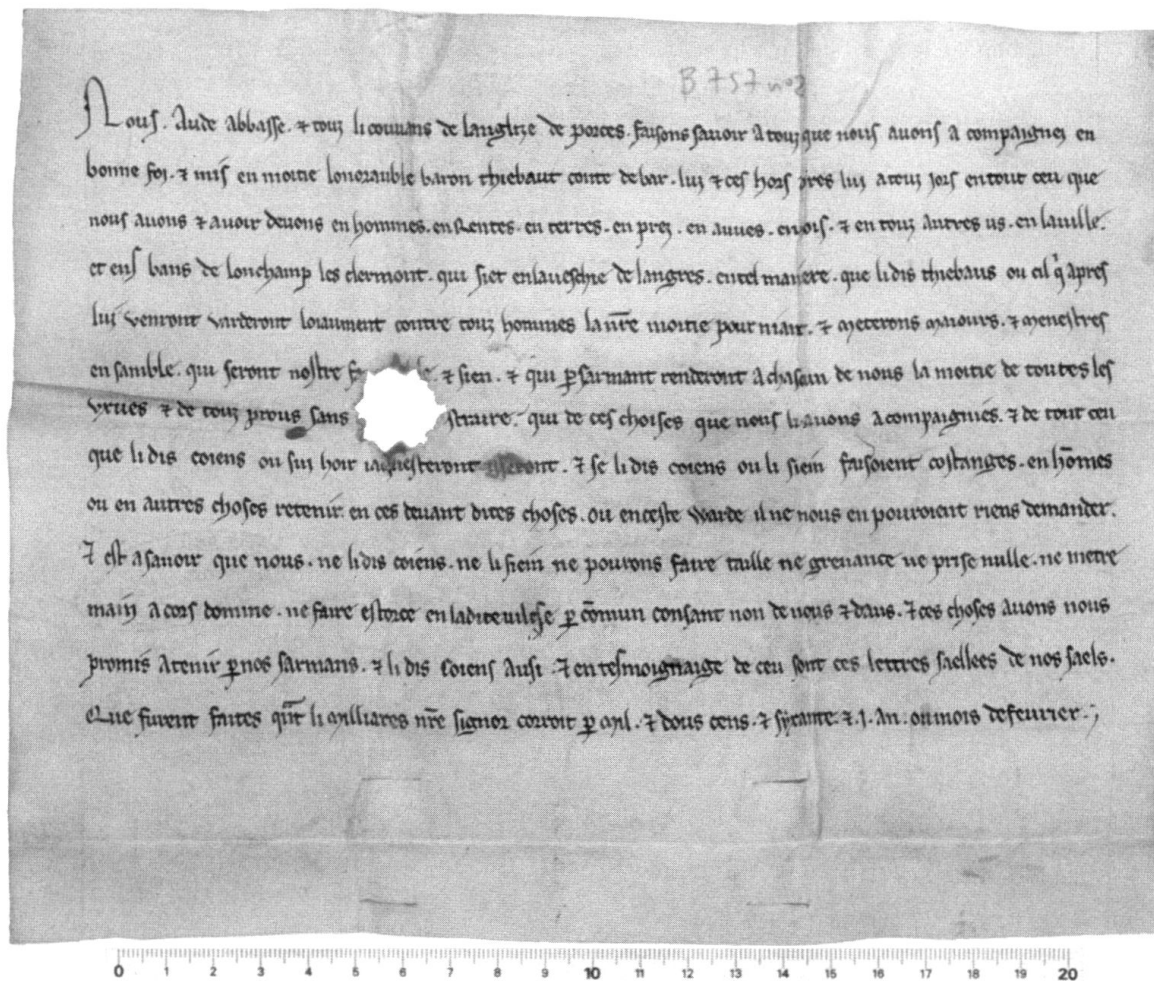 B 757 no2
Nous. Aude abbasse. ⁊ touz li couuans de langlize de porces. faisons sauoir a touz que nous auons a compaignez en
bonne foi. ⁊ mis en moitie lonorauble baron thiebaut conte de bar. luj ⁊ ces hors pres luj a touz jors en tout ceu que
nous auons ⁊ auoir deuons en hommes. en Rentes. en terres. en prez. en auues. en ois. ⁊ en touz autres us. en lauille.
et ens bans de lonchamp les clermont. qui siet en laueschie de langres. en tel maniere. que li dis thiebaus ou cil q' apres
lui venront varderont loiaument contre touz hommes la nr̄e moitie pour niant. ⁊ meterons maiours. ⁊ menestres
en samble. qui seront nostre ⁊ sien. ⁊ qui ꝑ sarmant renderont a chascun de nous la moitie de toutes les
⁊ de touz prous sans straire. qui de ces choises que nous li auons acompaigniés. ⁊ de tout ceu
que li dis coiens ou sui hoir . ⁊ se li dis coiens ou li siein faisoient costanges. en hōmes
ou en autres choses retenir. en ces deuant dites choses. ou en ceste warde il ne nous en pouroient riens demander.
⁊ est a sauoir que nous. ne li dis coiens. ne li siein ne pourons faire taille ne greuance ne prise nulle. ne metre
main a cors domme. ne faire estorce en ladite uile se ꝑ cōmun consant non de nous ⁊ daus. ⁊ ces choses auons nous
promis a tenir ꝑ nos sarmans. ⁊ li dis coiens ausi. ⁊ en tesmoignaige de ceu sont ces lettres saellees de nos saels.
Que furent faites qn̄t li milliares nr̄e signor corroit ꝑ mil. ⁊ dous cens. ⁊ syxante. ⁊ .j. an. ou mois de feurier.
0 1 2 3 4 5 6 7 8 9 10 11 12 13 14 15 16 17 18 19 20